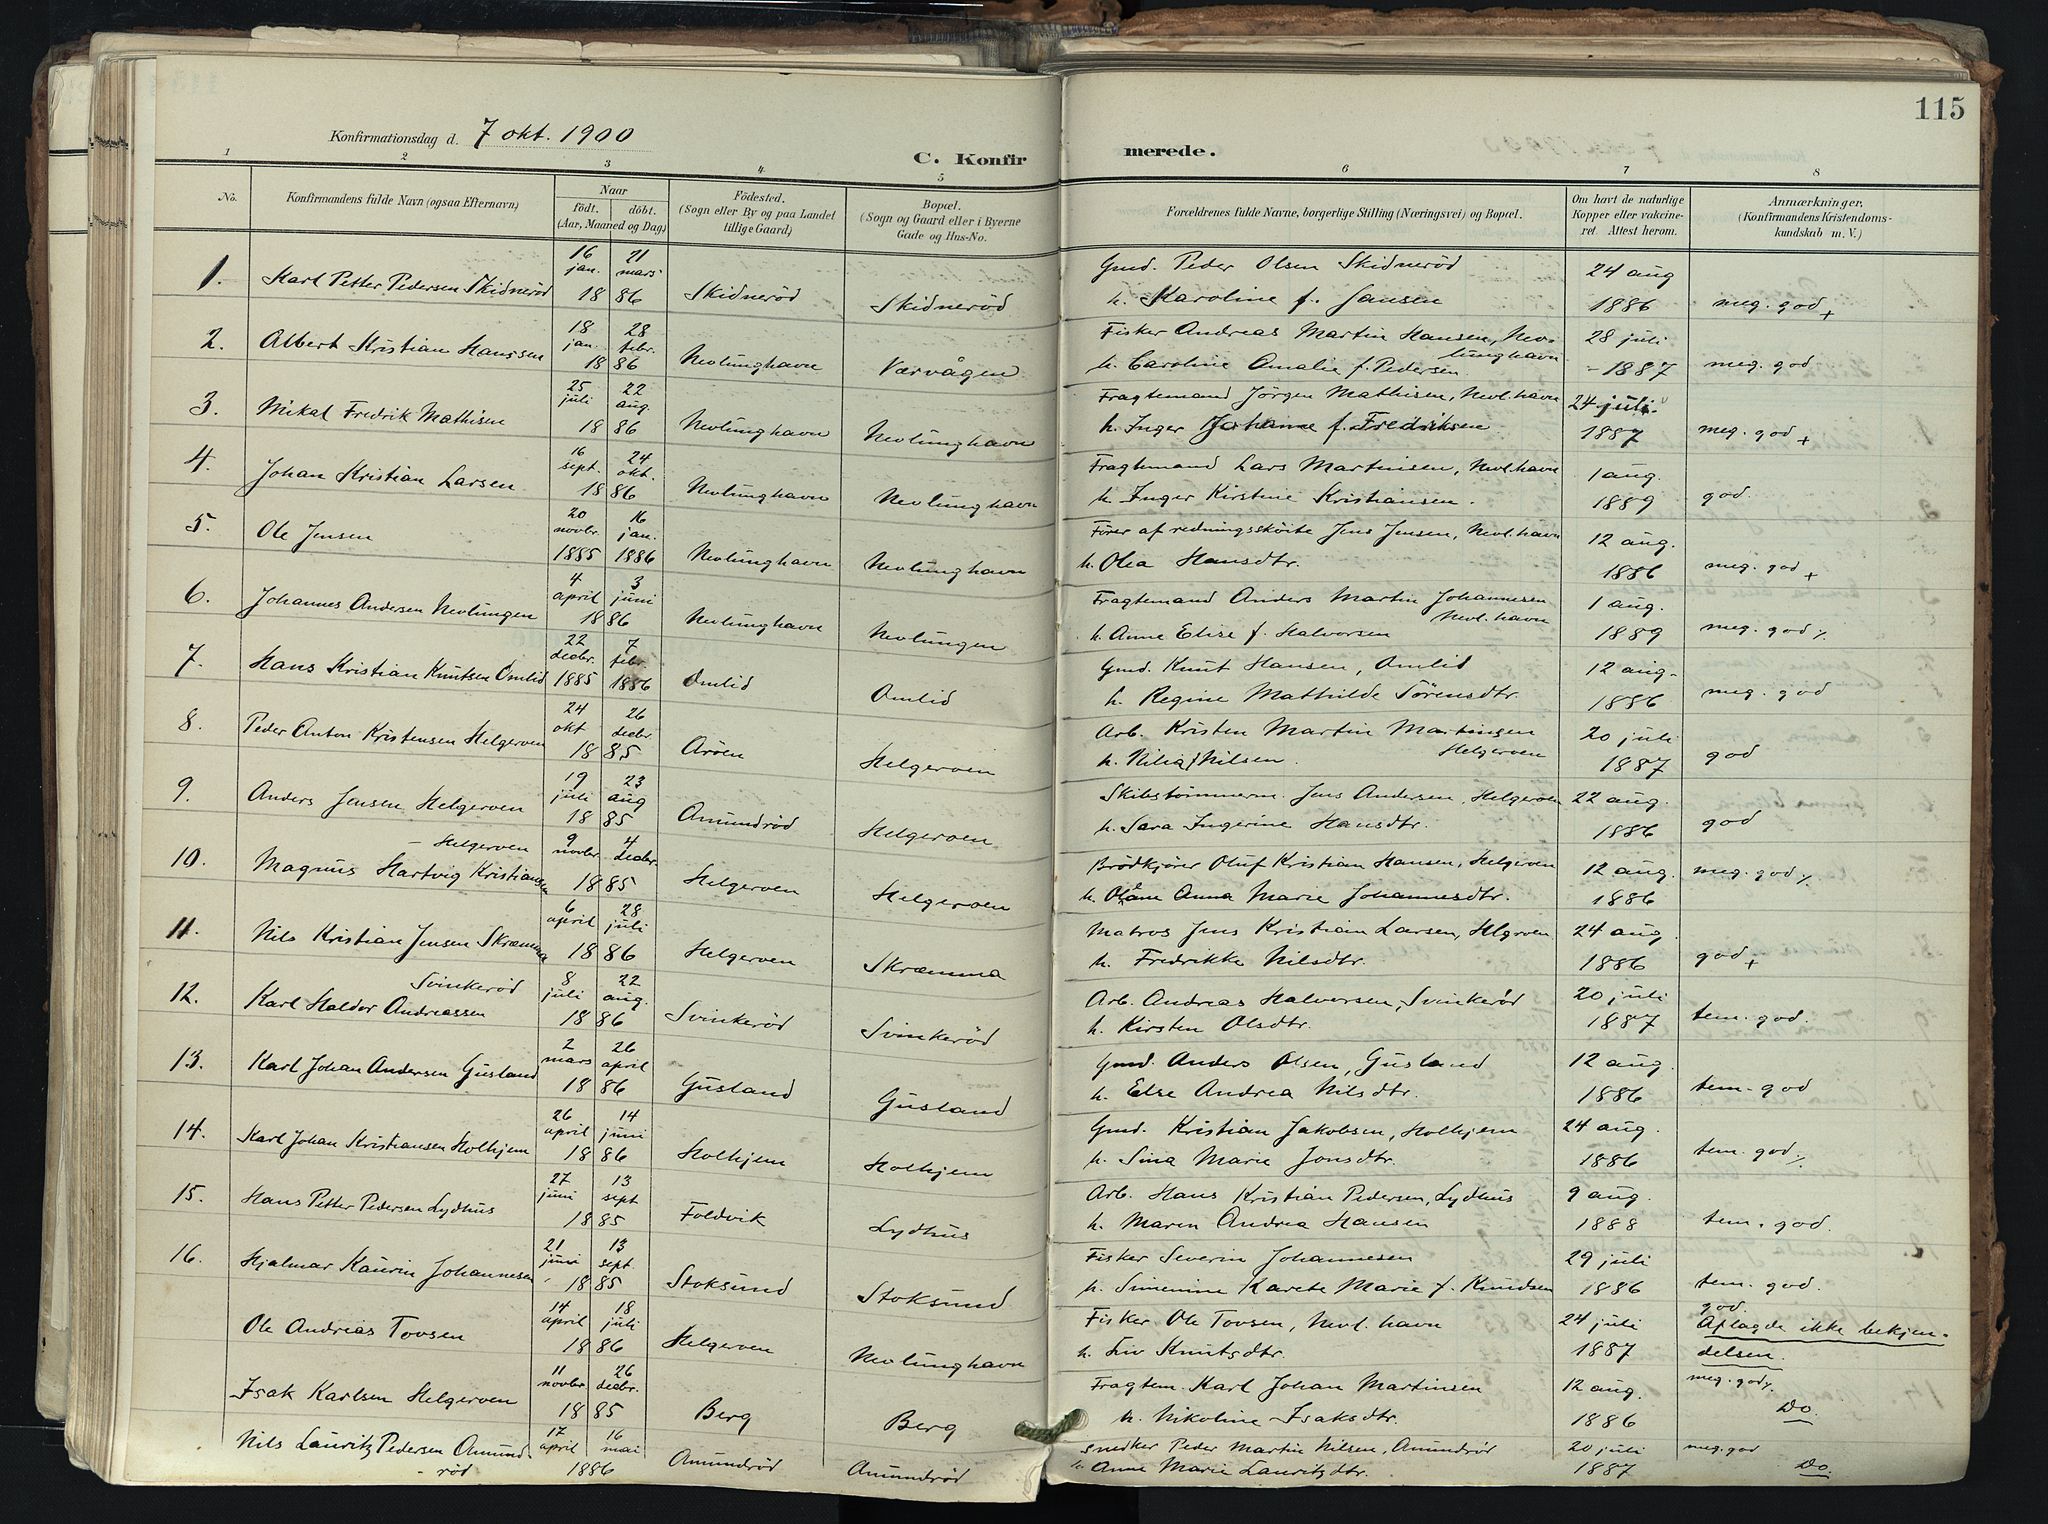 115
Konfirmationsdag d. 7 okt. 1900
C. Konfir merede.
1 2 3 4 5 6 7 8
No. Konfirmandens fulde Navn (ogsaa Efternavn) Naar födt. döbt. (Aar, Maaned og Dag) Födested. (Sogn eller By og paa Landet tillige Gaard) Bopæl. (Sogn og Gaard eller i Byerne Gade og Hus-No. Forældrenes fulde Navne, borgerlige Stilling (Næringsvei) og Bopæl. Om havt de naturlige Kopper eller vakcineret. Attest herom. Anmærkninger. (Konfirmandens Kristendomskundskab m. V.)
1. Karl Petter Pedersen Skidneröd 16 jan. 21 mars 1886 Skidneröd Skidneröd Gmd. Peder Olsen Skidneröd
h. Karoline f. Jansen 24 aug 1886 meg. god +
2. Albert Kristian Hanssen 18 jan. 28 febr. 1886 Nevlunghavn Værvågen Fisker Andreas Martin Hansen, Nevlunghavn
h. Caroline Amalie f. Pedersen 28 juli - 1887 meg. god
3. Mikal Fredrik Mathisen 25 juli 22 aug. 1886 Nevlunghavn Nevlunghavn Fragtemand Jörgen Mathisen, Nevl.havn
h. Inger Johanne f. Fredriksen 24 juli 1887 meg. god +
4. Johan Kristian Larsen 16 sept. 24 okt. 1886 Nevlunghavn Nevlunghavn Fragtemand Lars Martinsen, Nevl.havn
h. Inger Kirstine Kristiansen. 1 aug. 1889 god
5. Ole Jensen 20 novbr. 1885 16 jan. 1886 Nevlunghavn Nevlunghavn Förer af redningssköite Jens Jensen, Nevl.havn
h. Olea Hansdtr. 12 aug. 1886 meg. god +
6. Johannes Andersen Nevlungen 4 april 3 juni 1886 Nevlunghavn Nevlungen Fragtemand Anders Martin Johannesen Nevl.havn
h. Anne Elise f. Halvorsen 1 aug. 1889 meg. god %
7. Hans Kristian Knutsen Omlid 22 decbr. 1885 7 febr. 1886 Omlid Omlid Gmd. Knut Hansen, Omlid
h. Regine Mathilde Sörensdtr. 12 aug. 1886 meg. god
8. Peder Anton Kristensen Helgeroen 24 okt 26 decbr 1885 Aröen Helgeroen Arb. Kristen Martin Martinsen Helgeroen
h. Nilia f. Nilsen. 20 juli 1887 god
9. Anders Jensen Helgeroen 19 juli 23 aug 1885 Amundröd Helgeroen Skibstömmerm. Jens Andersen, Helgeroen
h. Sara Ingerine Hansdtr. 22 aug. 1886 god
10. Magnus Hartvig Kristiansen - Helgeroen 9 novbr 4 decbr. 1885 Helgeroen Helgeroen Brödkjörer Oluf Kristian Hansen, Helgeroen
h. Anna Marie Johannesdtr. 12 aug. 1886 meg. god %
11. Nils Kristian Jensen Skræmma 6 april 28 juli 1886 Helgeroen Skræmma Matros Jens Kristian Larsen, Helgroen
h. Fredrikke Nilsdtr. 24 aug. 1886 god +
12. Karl Haldor Andreassen Svinkeröd 8 juli 22 aug. 1886 Svinkeröd Svinkeröd Arb. Andreas Halvorsen, Svinkeröd
h. Kirsten Olsdtr. 20 juli 1887 tem. god.
13. Karl Johan Andersen Gusland 2 mars 26 april 1886 Gusland Gusland Gmd. Anders Olsen, Gusland
h. Else Andrea Nilsdtr. 12 aug. 1886 tem. god
14. Karl Johan Kristiansen Holhjem 26 april 14 juni 1886 Holhjem Holhjem Gmd. Kristian Jakobsen, Holhjem
h. Sina Marie Jonsdtr. 24 aug. 1886 tem. god %
15. Hans Petter Pedersen Lydhus 27 juni 13 sept 1885 Foldvik Lydhus Arb. Hans Kristian Pedersen, Lydhus
h. Maren Andrea Hansen 9 aug. 1888 tem. god.
16. Hjalmar Kaurin Johannesen 21 juni 13 sept. 1885 Stoksund Stoksund Fisker Severin Johannesen
h. Simenine Karete Marie f. Knudsen 29 juli 1886 tem. god
Ole Andreas Tovsen 14 april 18 juli 1886 Helgeroen Nevlunghavn Fisker Ole Tovsen, Nevl. havn
h. Liv Knutsdtr. 24 juli 1887 god. Aflagde ikke bekjendelsen.
Isak Karlsen Helgeroen 11 novbr 26 decbr. 1885 Berg Berg Fragtem. Karl Johan Martinsen
h. Nikoline Isaksdtr. 12 aug. 1886 meg. god %. Do
Nils Lauritz Pedersen Amundröd 17 april 16 mai 1886 Amundröd Amundröd Snedker Peder Martin Nilsen, Amundröd
h. Anne Marie Lauritzdtr. 20 juli 1887 meg. god Do.